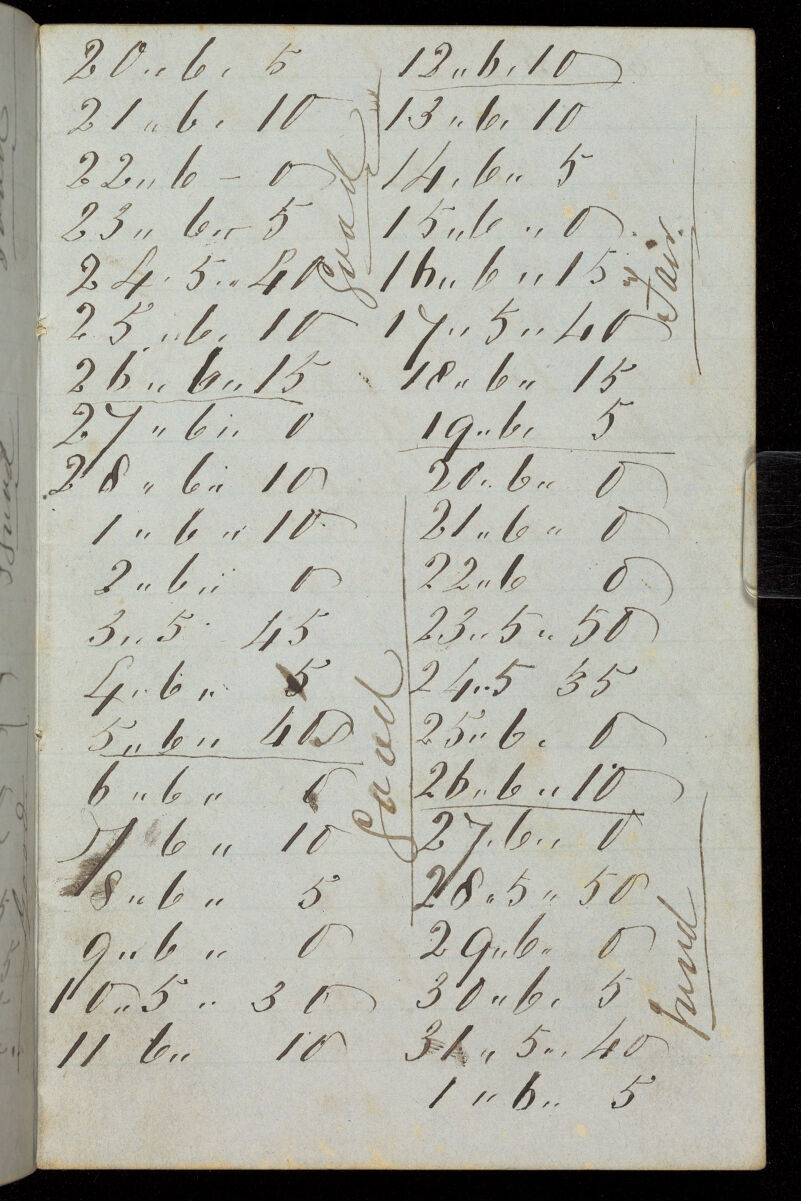 20 " 6 " 5
21 " 6 " 10
22 " 6 – 0
23 " 6 " 5
24 " 5 " 40
25 " 6 " 10
26 " 6 " 15
27 " 6 " 0
28 " 6 " 10
1 " 6 " 10
2 " 6 " 0
3 " 5 " 45
4 " 6 " 5
5 " 6 " 40
6 " 6 " 0
7 " 6 " 10
8 " 6 " 5
9 " 6 " 0
10 " 5 " 30
11 6 " 10
Good
Good
12 " 6 " 10
13 " 6 " 10
14 " 6 " 5
15 " 6 " 0
16 " 6 " 15
17 " 5 " 40
18 " 6 " 15
19 " 6 " 5
20 " 6 " 0
21 " 6 " 0
22 " 6 0
23 " 5 " 50
24 " 5 35
25 " 6 " 0
26 " 6 " 10
27 " 6 " 0
28 " 5 " 50
29 " 6 " 0
30 " 6 " 5
31 " 5 " 40
1 " 6 " 5
Fair